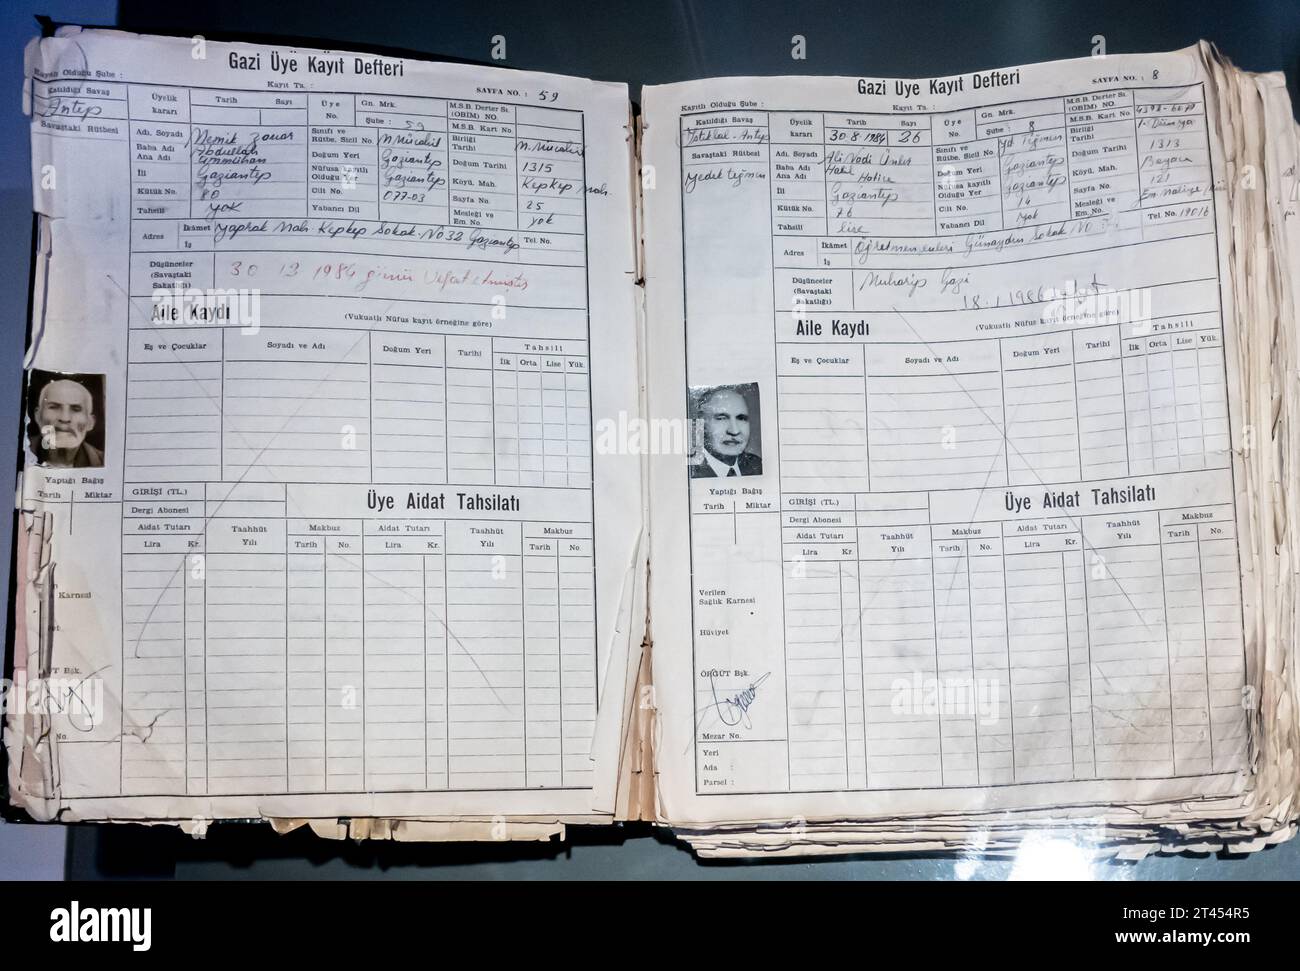 Gazi Üye Kayıt Defteri
Kayıtlı Olduğu Şube :
Kayıt Ta. :
SAYFA NO. : 59
Katıldığı Savaş
Antep
Savaştaki Rütbesi
Üyelik kararı
Tarih
Sayı
Üye No.
Gn. Mrk.
Şube : 59
M.S.B. Derter Sı. (OBİM) NO.
M.S.B. Kart No.
Adı. Soyadı
Baba Adı Abdullah
Ana Adı Ümmühan
İli Gaziantep
Kütük No. 80
Tahsili Yok
Sınıfı ve Rütbe. Sicil No.
Doğum Yeri Gaziantep
Nüfusa kayıtlı Olduğu Yer Gaziantep
Cilt No. 077-03
Yabancı Dil
Birliği Tarihi
Doğum Tarihi 1315
Köyü. Mah. Kepkep Mah.
Sayfa No. 25
Mesleği ve Em. No. yok
Adres
İkâmet Yaprak Mah. Kepkep Sokak No 32 Gaziantep
İş
Tel. No.
Düşünceler (Savaştaki Sakatlığı) 1984 günü Vefat etmiştir
Aile Kaydı
(Vukuatlı Nüfus kayıt örneğine göre)
Eş ve Çocuklar
Soyadı ve Adı
Doğum Yeri
Tarihi
Tahsili
İlk Orta Lise Yük.
Yaptığı Bağış
Tarih Miktar
GİRİŞİ (TL.)
Dergi Abonesi
Üye Aidat Tahsilatı
Aidat Tutarı
Taahhüt Yılı
Makbuz
Aidat Tutarı
Taahhüt Yılı
Makbuz
Lira Kr. Tarih No. Lira Kr. Tarih No.
Karnesi
Bşk.
No.
Gazi Üye Kayıt Defteri
Kayıtlı Olduğu Şube :
Kayıt Ta. :
SAYFA NO. : 8
Katıldığı Savaş
İstiklal - Antep
Savaştaki Rütbesi
Yedek teğmen
Üyelik kararı
Tarih 30-8-1984
Sayı 26
Üye No.
Gn. Mrk.
Şube : 8
M.S.B. Derter Sı. (OBİM) NO.
M.S.B. Kart No.
Adı. Soyadı Ali Nadi Ünler
Baba Adı Halil
Ana Adı Hatice
İli Gaziantep
Kütük No. 76
Tahsili Lise
Sınıfı ve Rütbe. Sicil No. Yd. Teğmen
Doğum Yeri Gaziantep
Nüfusa kayıtlı Olduğu Yer Gaziantep
Cilt No. 14
Yabancı Dil Yok
Birliği Tarihi
Doğum Tarihi 1313
Köyü. Mah.
Sayfa No. 121
Mesleği ve Em. No.
Adres
İkâmet Öğretmenevleri Günaydın Sokak No
İş
Tel. No. 19016
Düşünceler (Savaştaki Sakatlığı) Muharip Gazi
18.1.1986
Aile Kaydı
(Vukuatlı Nüfus kayıt örneğine göre)
Eş ve Çocuklar
Soyadı ve Adı
Doğum Yeri
Tarihi
Tahsili
İlk Orta Lise Yük.
Yaptığı Bağış
Tarih Miktar
GİRİŞİ (TL.)
Dergi Abonesi
Üye Aidat Tahsilatı
Aidat Tutarı
Taahhüt Yılı
Makbuz
Aidat Tutarı
Taahhüt Yılı
Makbuz
Lira Kr. Tarih No. Lira Kr. Tarih No.
Verilen
Sağlık Karnesi
Hüviyet
ÖRGÜT Bşk.
Mezar No.
Yeri
Ada :
Parsel :
alamy
Image ID: 2T454R5
www.alamy.com